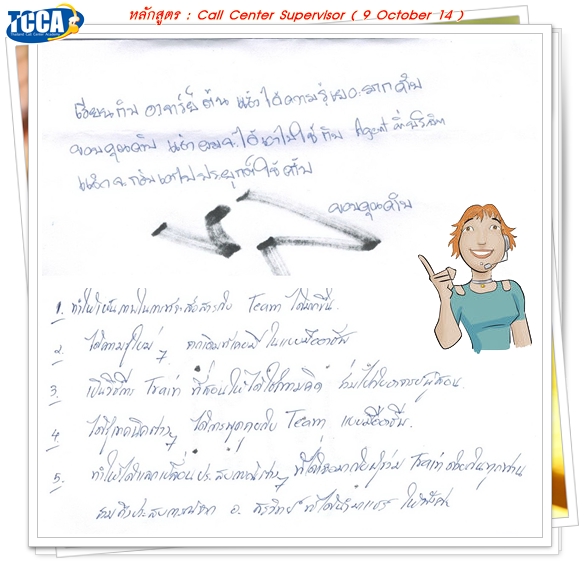 TCCA
Thailand Call Center Academy
หลักสูตร : Call Center Supervisor ( 9 October 14 )
เรียนกับ อาจารย์ต้น แล้วได้ความรู้เยอะมากครับ
ขอบคุณครับ แล้วผมจะได้เอาไปใช้กับ Agent ที่บริษัท
แล้วจะกลับเอาไปประยุกต์ใช้ครับ
ขอบคุณครับ
1. ทำให้เห็นภาพในการสื่อสารกับ Team ได้มากขึ้น.
2. ได้ความรู้ใหม่ๆ ในแบบมืออาชีพ
3. เป็นวิธีการ Train ที่สอนให้ได้ใช้ความคิด ร่วมไปกับอาจารย์ผู้สอน.
4. ได้รู้เทคนิคต่างๆ ได้การพูดคุยกับ Team แบบมืออาชีพ.
5. ทำให้ได้แลกเปลี่ยนประสบการณ์ต่างๆ ที่ได้ กับผู้ร่วม Train ด้วยกันทุกท่าน
รวมถึงประสบการณ์จาก อ. ที่ได้นำมาแชร์ ให้ฟังค่ะ